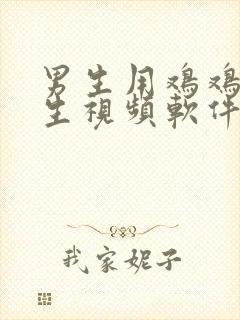 男生用鸡鸡
生視頻軟件
我家妮子